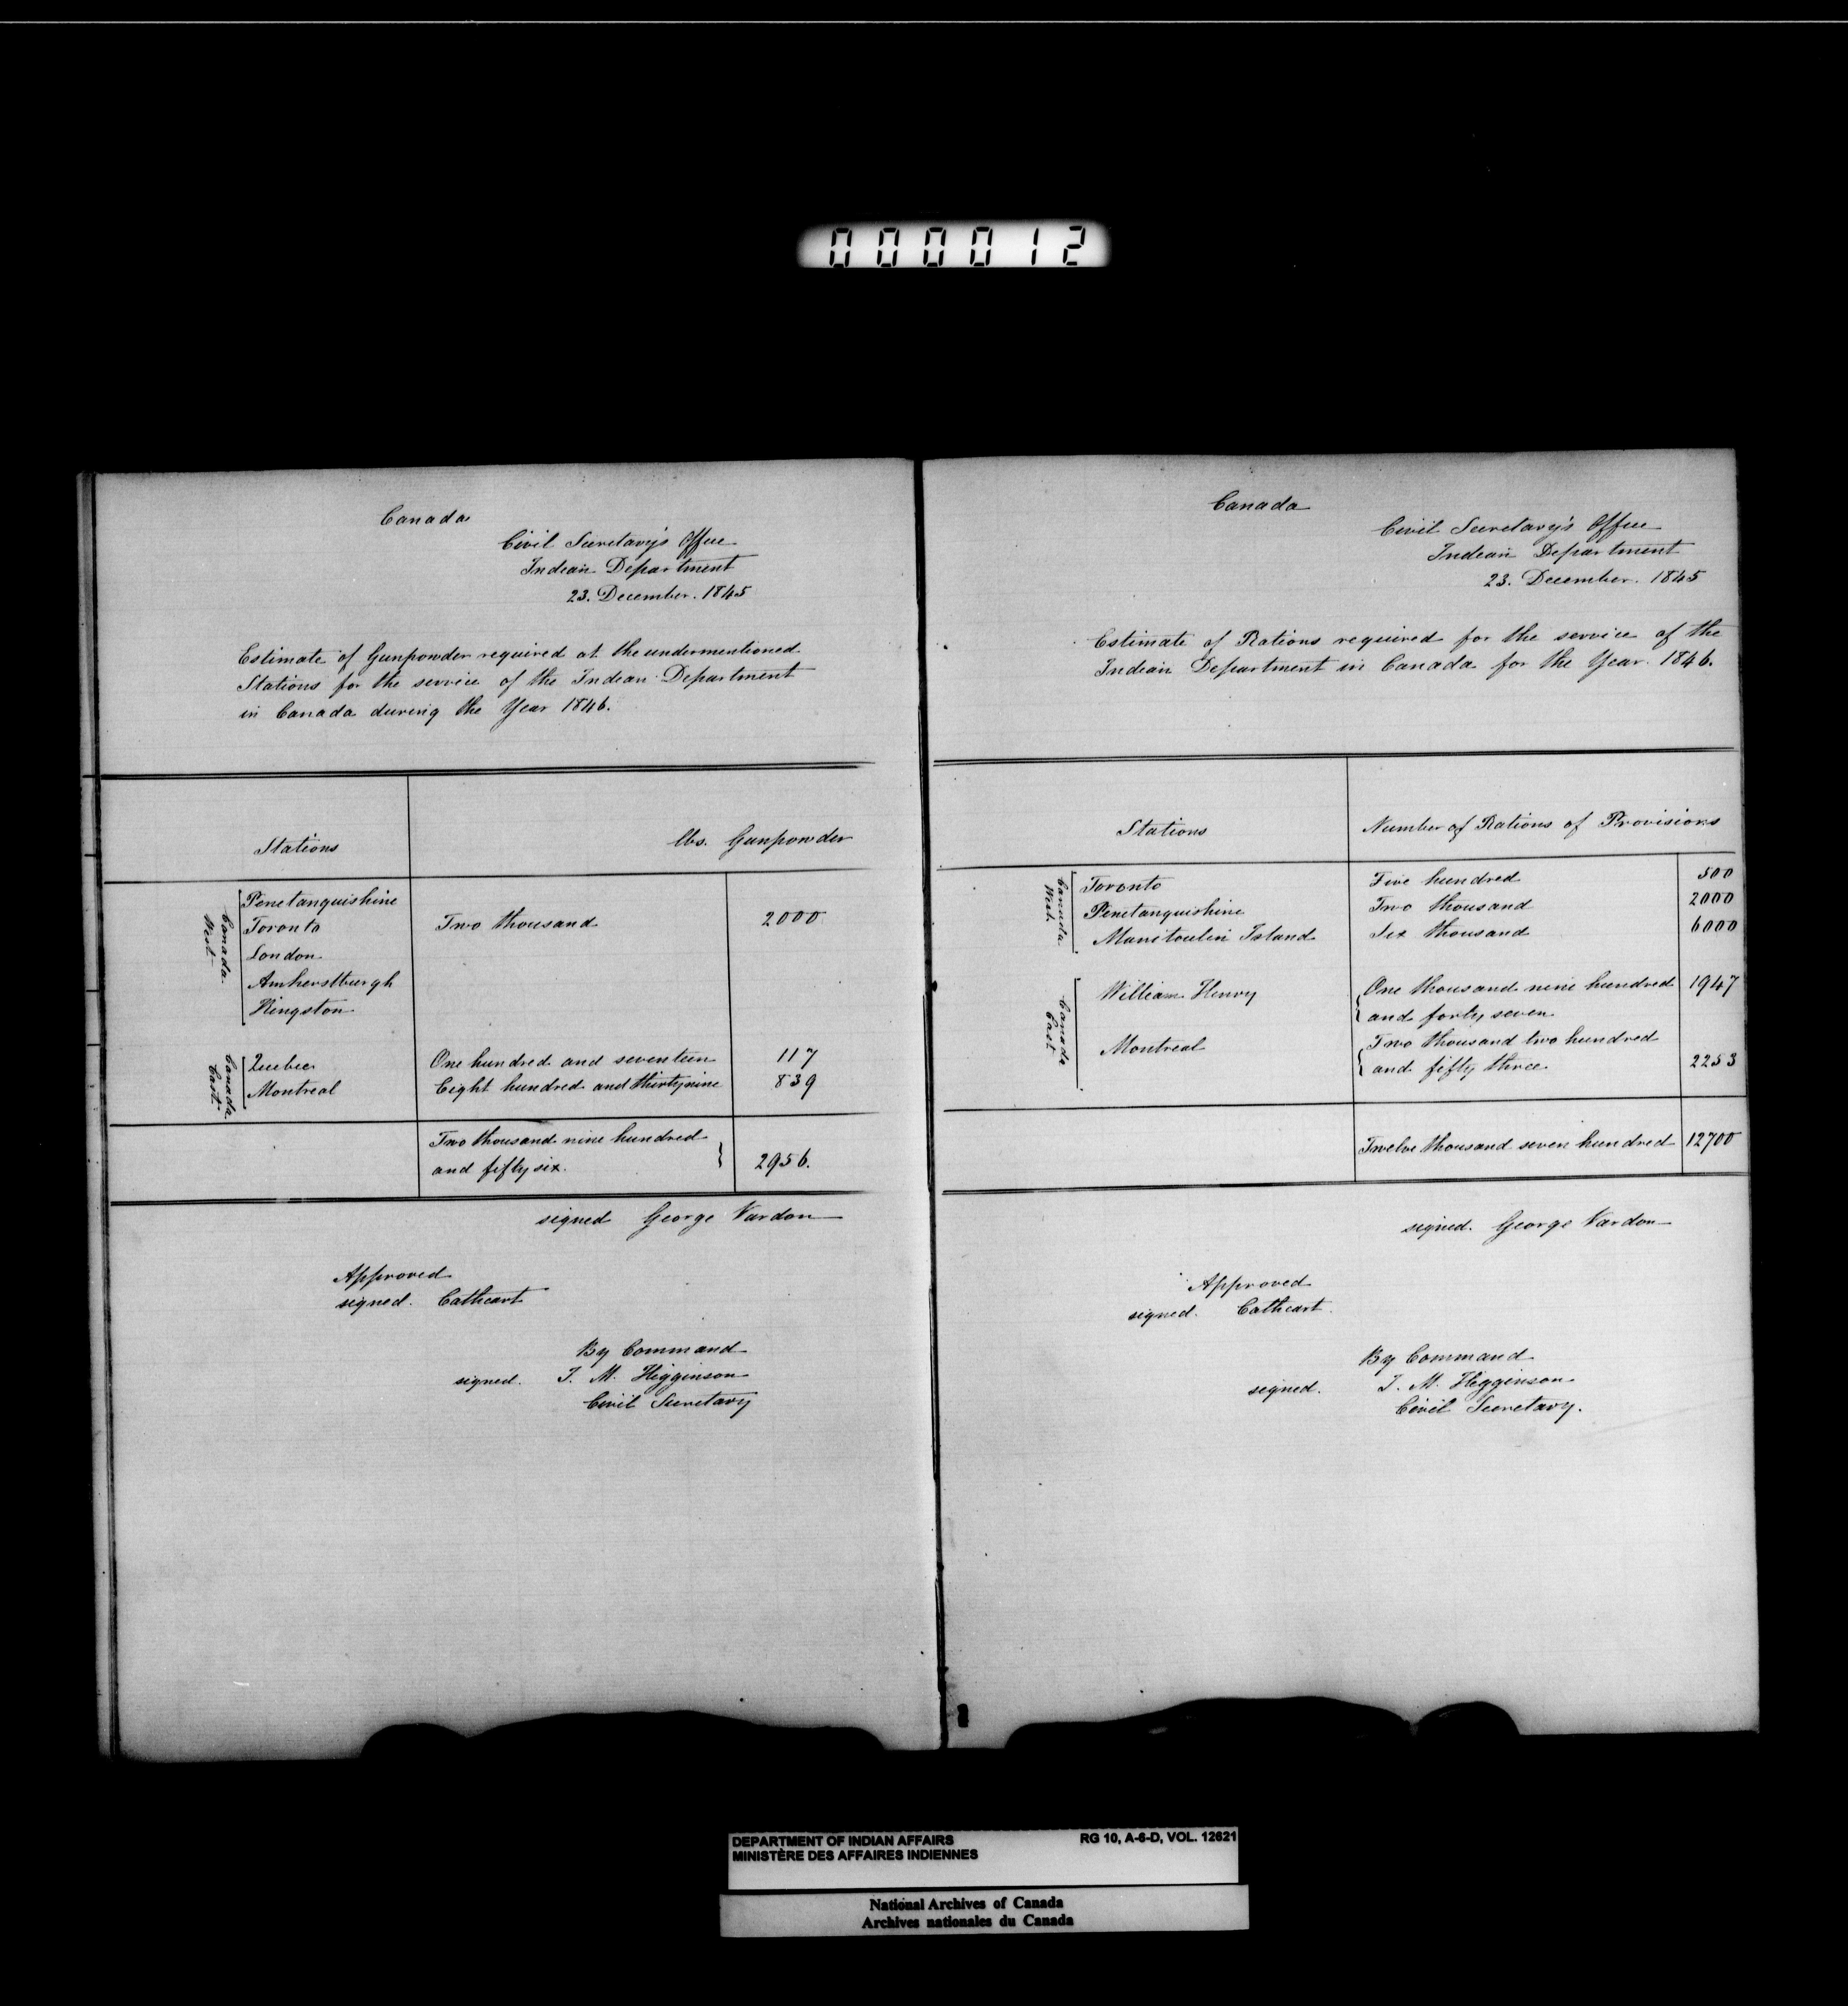 000012
Canada
Civil Secretary's Office
Indian Department
23. December. 1845
Estimate of Gunpowder required at the undermentioned
Stations for the service of the Indian Department
in Canada during the Year 1846.
Stations
lbs. Gunpowder
Canada West
Penetanguishine
Toronto Two thousand 2000
London
Amherstburgh
Kingston
Canada East
Quebec One hundred and seventeen 117
Montreal Eight hundred and thirtynine 839
Two thousand nine hundred
and fifty six. 2956.
signed George Vardon
Approved
signed. Cathcart
By Command
signed. J. M. Higginson
Civil Secretary
Canada
Civil Secretary's Office
Indian Department
23. December. 1845
Estimate of Rations required for the service of the
Indian Department in Canada for the Year 1846.
Stations
Number of Rations of Provisions
Canada West.
Toronto Five hundred 500
Penetanguishine Two thousand 2000
Manitoulin Island Six thousand 6000
Canada East
William Henry One thousand nine hundred 1947
and forty seven
Montreal Two thousand two hundred
and fifty three 2253
Twelve thousand seven hundred 12700
signed. George Vardon
Approved
signed. Cathcart.
By Command
signed. J. M. Higginson
Civil Secretary.
DEPARTMENT OF INDIAN AFFAIRS RG 10, A-6-D, VOL. 12621
MINISTÈRE DES AFFAIRES INDIENNES
National Archives of Canada
Archives nationales du Canada